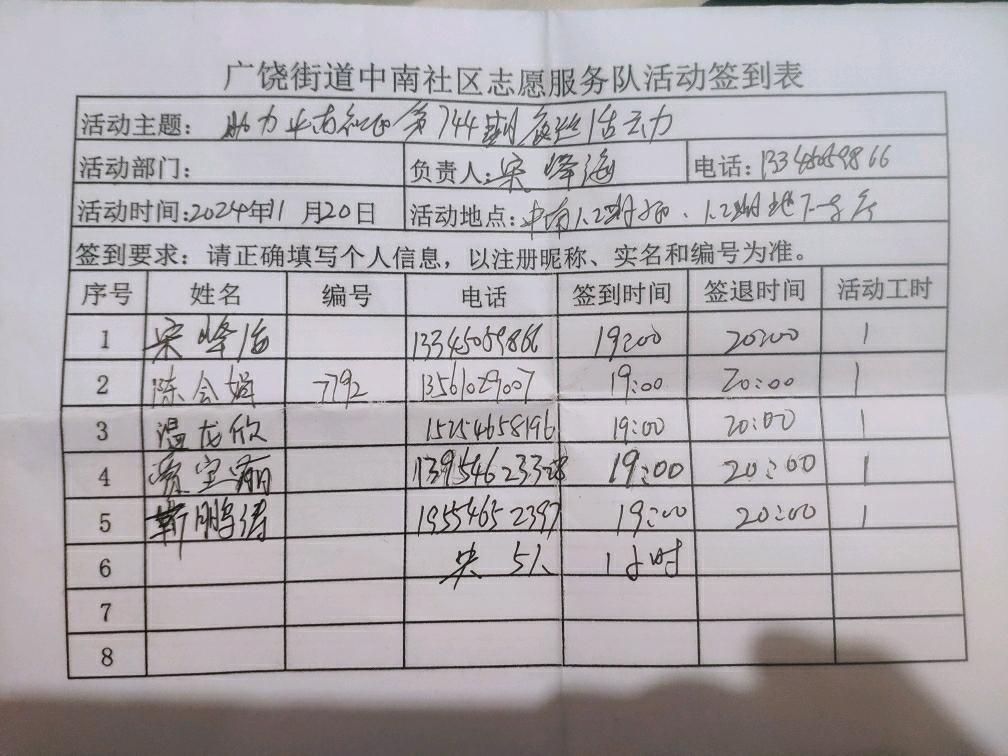 广饶街道中南社区志愿服务队活动签到表
活动主题: 助力 第744期 活动
活动部门: 负责人: 宋峰海 电话: 13345059866
活动时间: 2024年11月20日 活动地点: 中南1.2期
签到要求: 请正确填写个人信息，以注册昵称、实名和编号为准。
序号 姓名 编号 电话 签到时间 签退时间 活动工时
1 宋峰海 13345059866 19:00 20:00 1
2 陈会娟 7792 13561029007 19:00 20:00 1
3 温龙欣 15254658196 19:00 20:00 1
4 宝丽 13954623328 19:00 20:00 1
5 靳鹏涛 19554652397 19:00 20:00 1
6 共5人 1小时
7
8